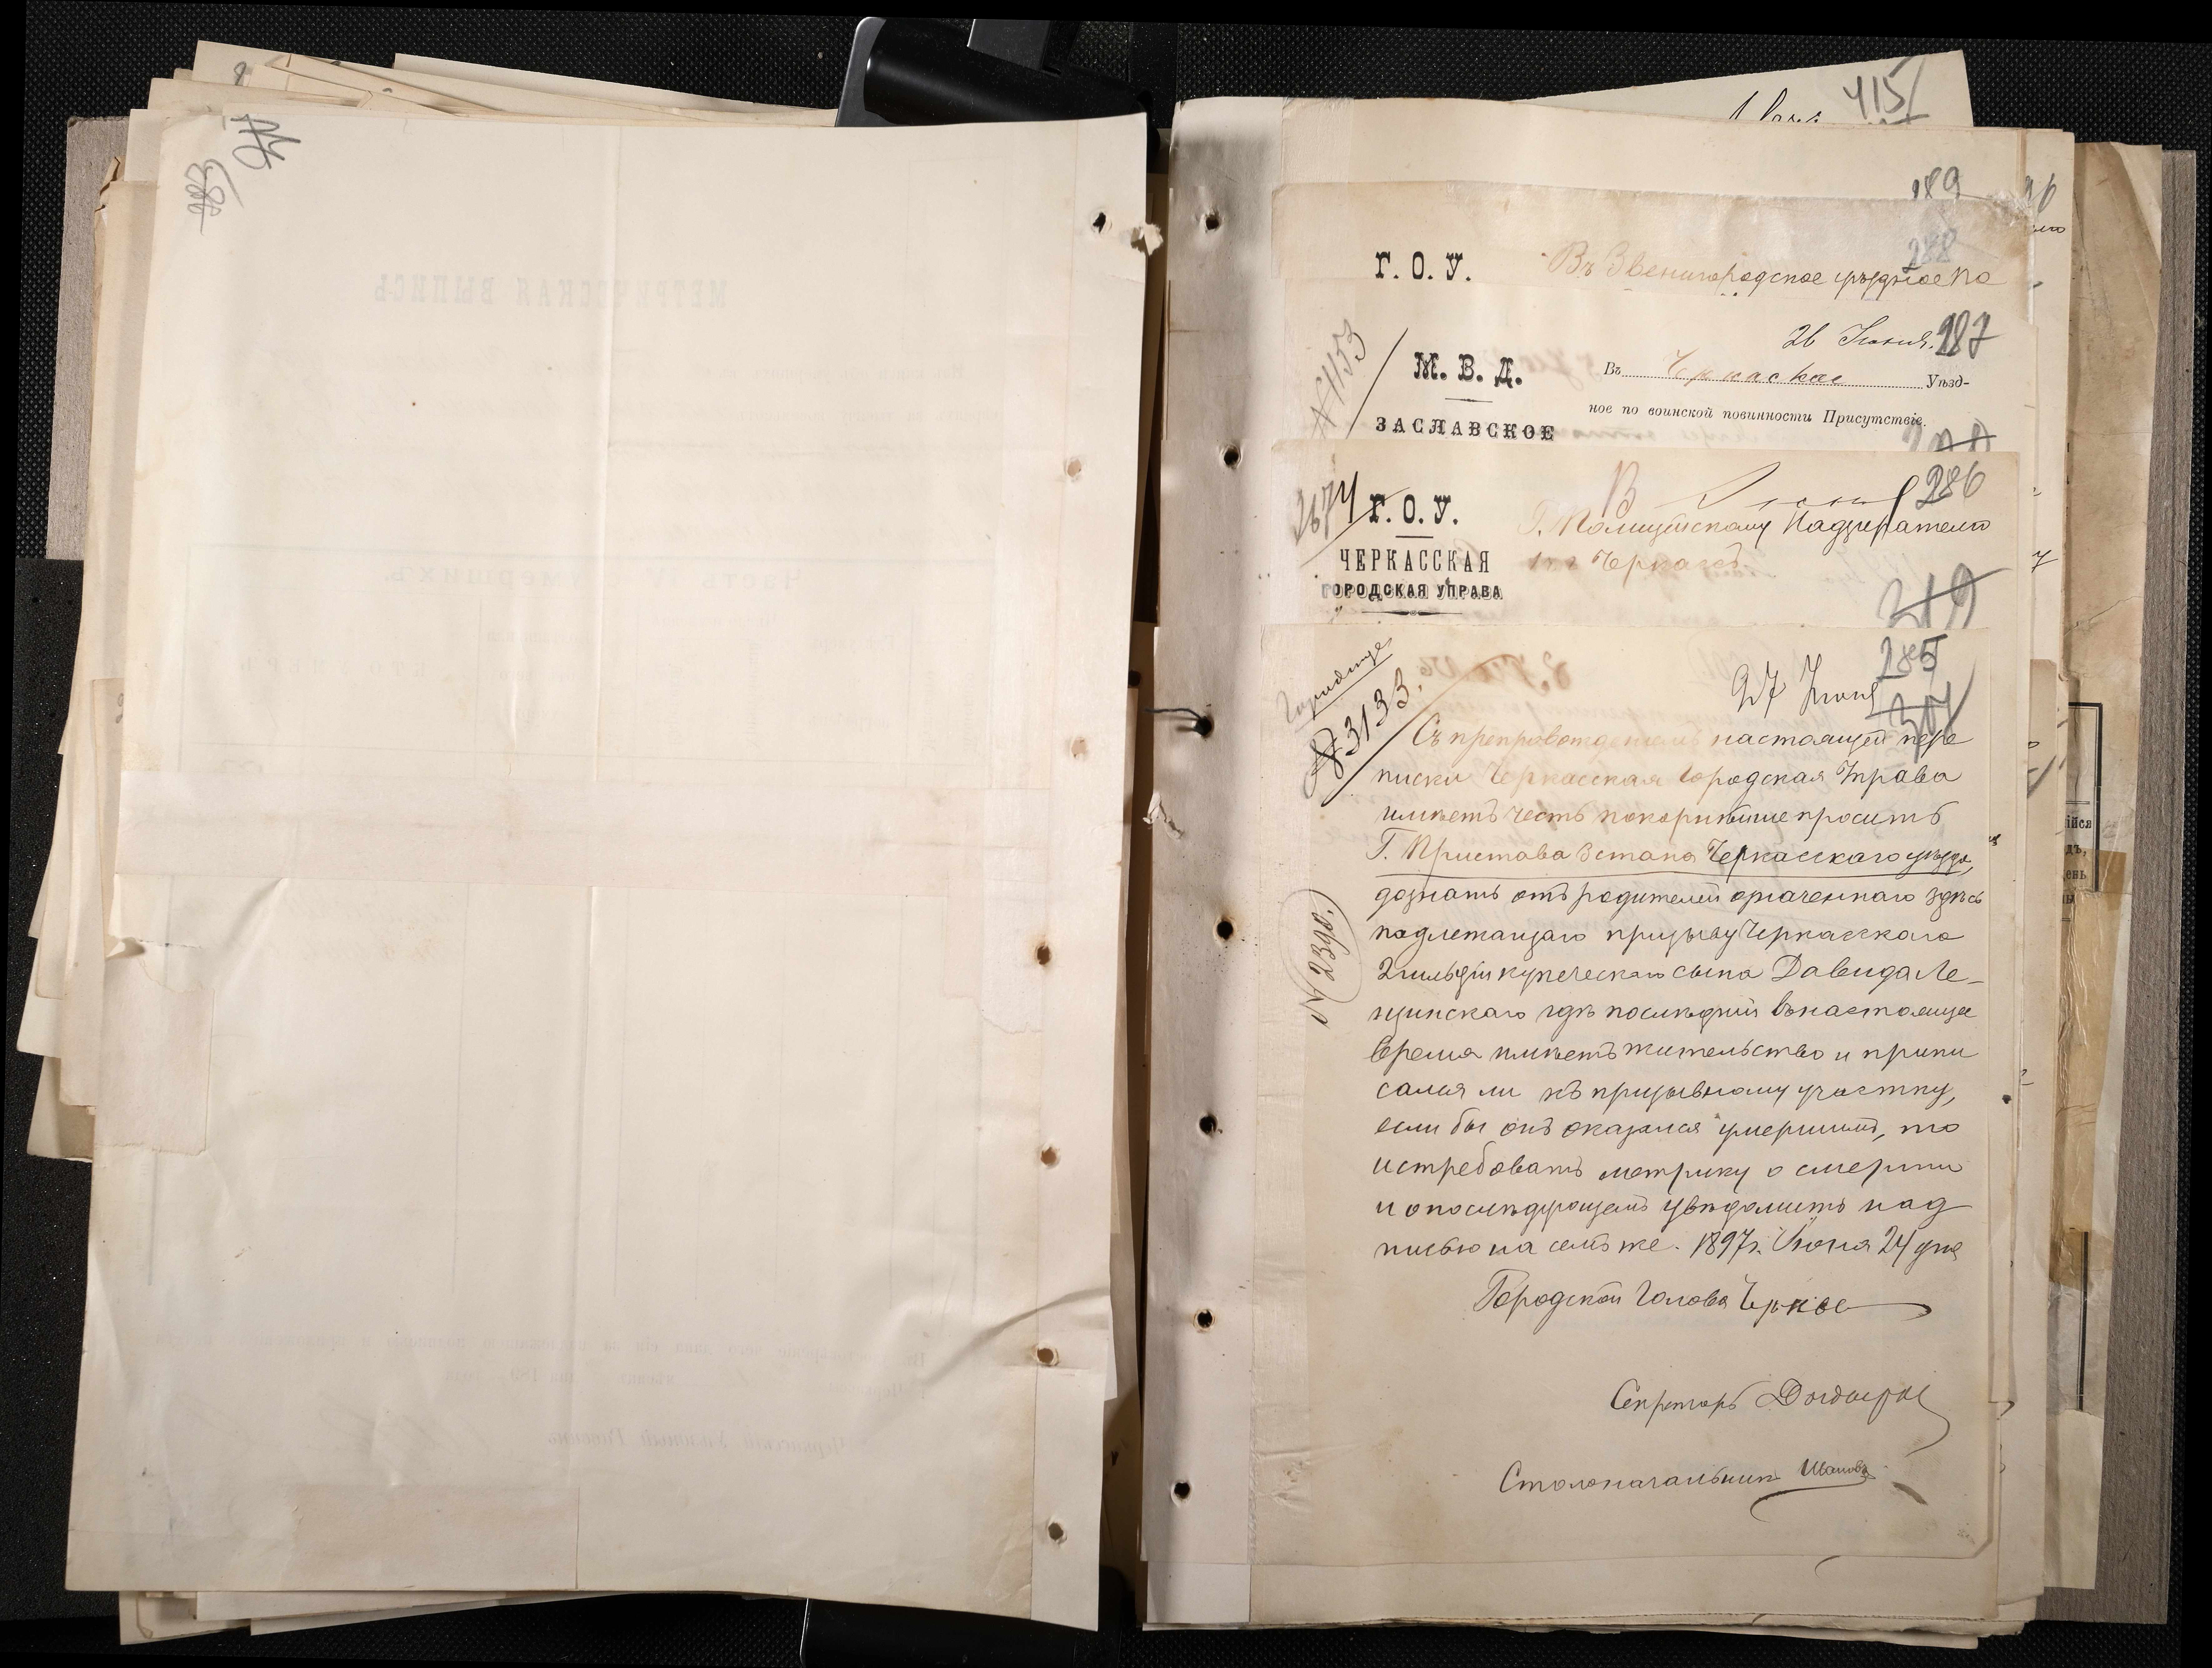 415
189
288
Г. О. У.
Въ Звенигородское уѣздное по
26 Іюня.
287
№ 4153
М. В. Д.
Въ Черкаское Уѣзд-
ное по воинской повинности Присутствіе.
ЗАСЛАВСКОЕ
286
2674
Г. О. У.
Г. Полицейскому Надзирателю
г. Черкасъ
ЧЕРКАССКАЯ
ГОРОДСКАЯ УПРАВА
319
285
Городище
27 Іюня
№ 3133.
Съ препровожденіемъ настоящей пере
писки Черкасская Городская Управа
имѣетъ честь покорнѣйше просить
Г. Пристава 3 стана Черкасскаго уѣзда,
дознать отъ родителей означеннаго здѣсь
подлежащаго призыву Черкасскаго
2 гильдіи купеческаго сына Давида Ле-
щинскаго гдѣ послѣдній въ настоящее
время имѣетъ жительство и припи
сался ли къ призывному участку,
если бы онъ оказался умершимъ, то
истребовать метрику о смерти
и о послѣдующемъ увѣдомить над
писью на семъ же. 1897 г. Іюня 24 дня
№ 2390.
Городской Голова
Секретарь
Столоначальник Ивановъ